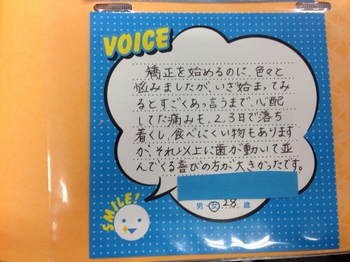 VOICE
矯正を始めるのに、色々と
悩みましたが、いざ始まってみ
るとすごくあっ言うまで、心配
してた痛みも、2、3日で落ち
着くし、食べにくい物もあります
が、それ以上に歯が動いて並
んでくる喜びの方が大きかったです。
SMILE!
男・女 28 歳